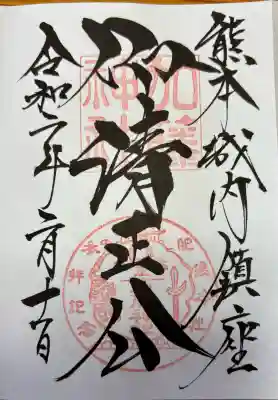 熊本城内鎮座
仰清正公
令和二年二月十一日
加藤神社